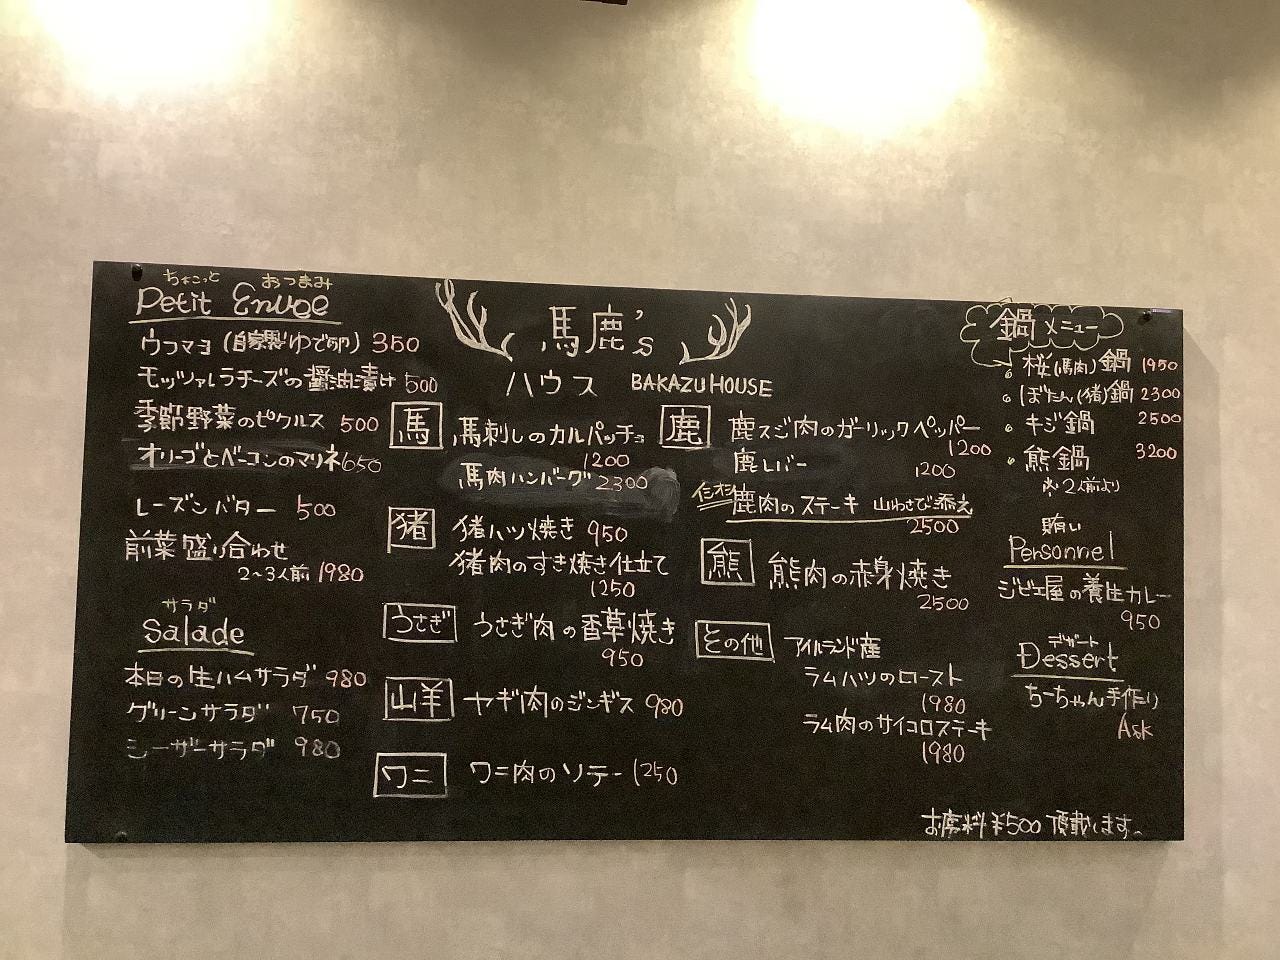 ちょこっと おつまみ
Petit Envoe
ウフマヨ (自家製ゆで卵) 350
モッツァレラチーズの醤油漬け 500
季節野菜のピクルス 500
オリーブとベーコンのマリネ 650
レーズンバター 500
前菜盛り合わせ
2〜3人前 1980
サラダ
Salade
本日の生ハムサラダ 980
グリーンサラダ 750
シーザーサラダ 980
馬鹿's
ハウス BAKAZU HOUSE
馬
馬刺しのカルパッチョ
1200
馬肉ハンバーグ 2300
猪
猪ハツ焼き 950
猪肉のすき焼き仕立て
1250
うさぎ
うさぎ肉の香草焼き
950
山羊
ヤギ肉のジンギス 980
ワニ
ワニ肉のソテー 1250
鹿
鹿スジ肉のガーリックペッパー
1200
鹿レバー
1200
イチオシ 鹿肉のステーキ 山わさび添え
2500
熊
熊肉の赤身焼き
2500
その他
アイルランド産
ラムハツのロースト
1980
ラム肉のサイコロステーキ
1980
鍋メニュー
桜(馬肉)鍋 1950
ぼたん(猪)鍋 2300
キジ鍋 2500
熊鍋 3200
※2人前より
賄い
Personnel
ジビエ屋の養生カレー
950
デザート
Dessert
ちーちゃん手作り
Ask
お席料¥500頂戴します。